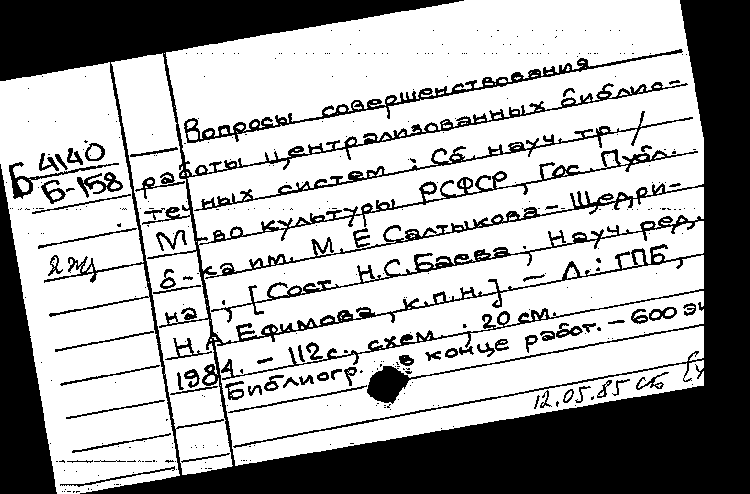 Вопросы совершенствования
Б 4140
Б-158
работы централизованных библио-
течных систем : Сб. науч. тр. /
М-во культуры РСФСР, Гос. Публ.
2 экз
б-ка им. М. Е Салтыкова - Щедри-
на ; [Сост. Н.С. Баева ; Науч. ред.
Н.А Ефимова, к.п.н.]. - Л. : ГПБ,
1984. - 112 с., схем. ; 20 см.
Библиогр. в конце работ. - 600 эк
12.05.85